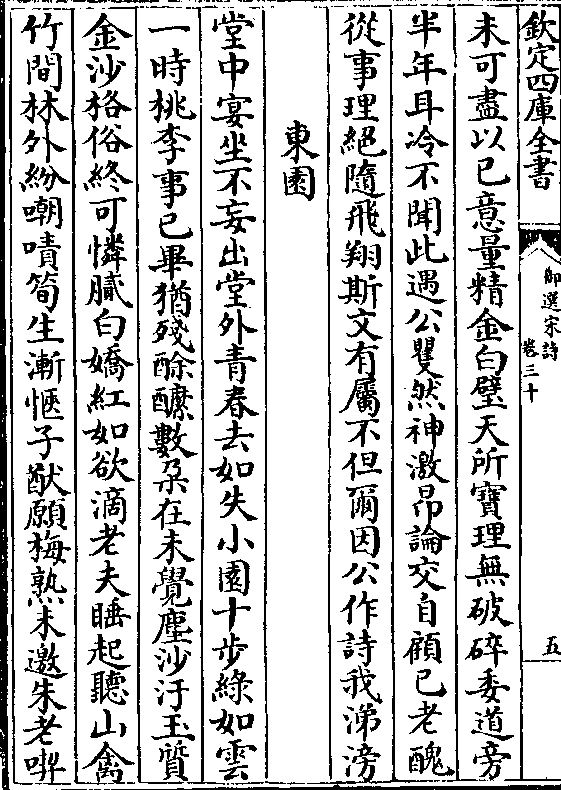 欽定四庫全書
御選宋詩
卷三十
五
未可盡以已意量精金白璧天所寶理無破碎委道旁
半年耳冷不聞此遇公矍然神激昂論交自顧已老醜
從事理絕隨飛翔斯文有屬不但爾因公作詩我涕滂
東園
堂中宴坐不妄出堂外青春去如失小園十步綠如雲
一時桃李事已畢猶殘酴醾數朶在未覺塵沙汙玉質
金沙格俗終可憐膩白嬌紅如欲滴老夫睡起聽山禽
竹間林外紛嘲嘖筍生漸愜子猷願梅熟未邀朱老喫